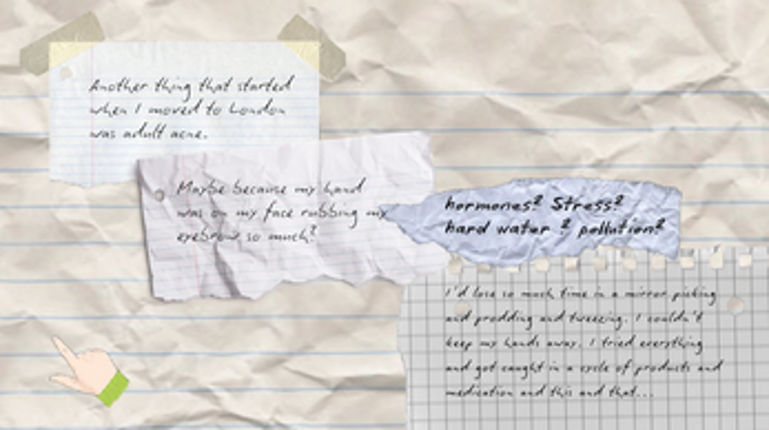 Another thing that started
when I moved to London
was adult acne.
Maybe because my hand
was on my face rubbing my
eyebrow so much?
hormones? Stress?
hard water ? pollution?
I'd lose so much time in a mirror picking
and prodding and tweezing. I couldn't
keep my hands away. I tried everything
and got caught in a cycle of products and
medication and this and that...